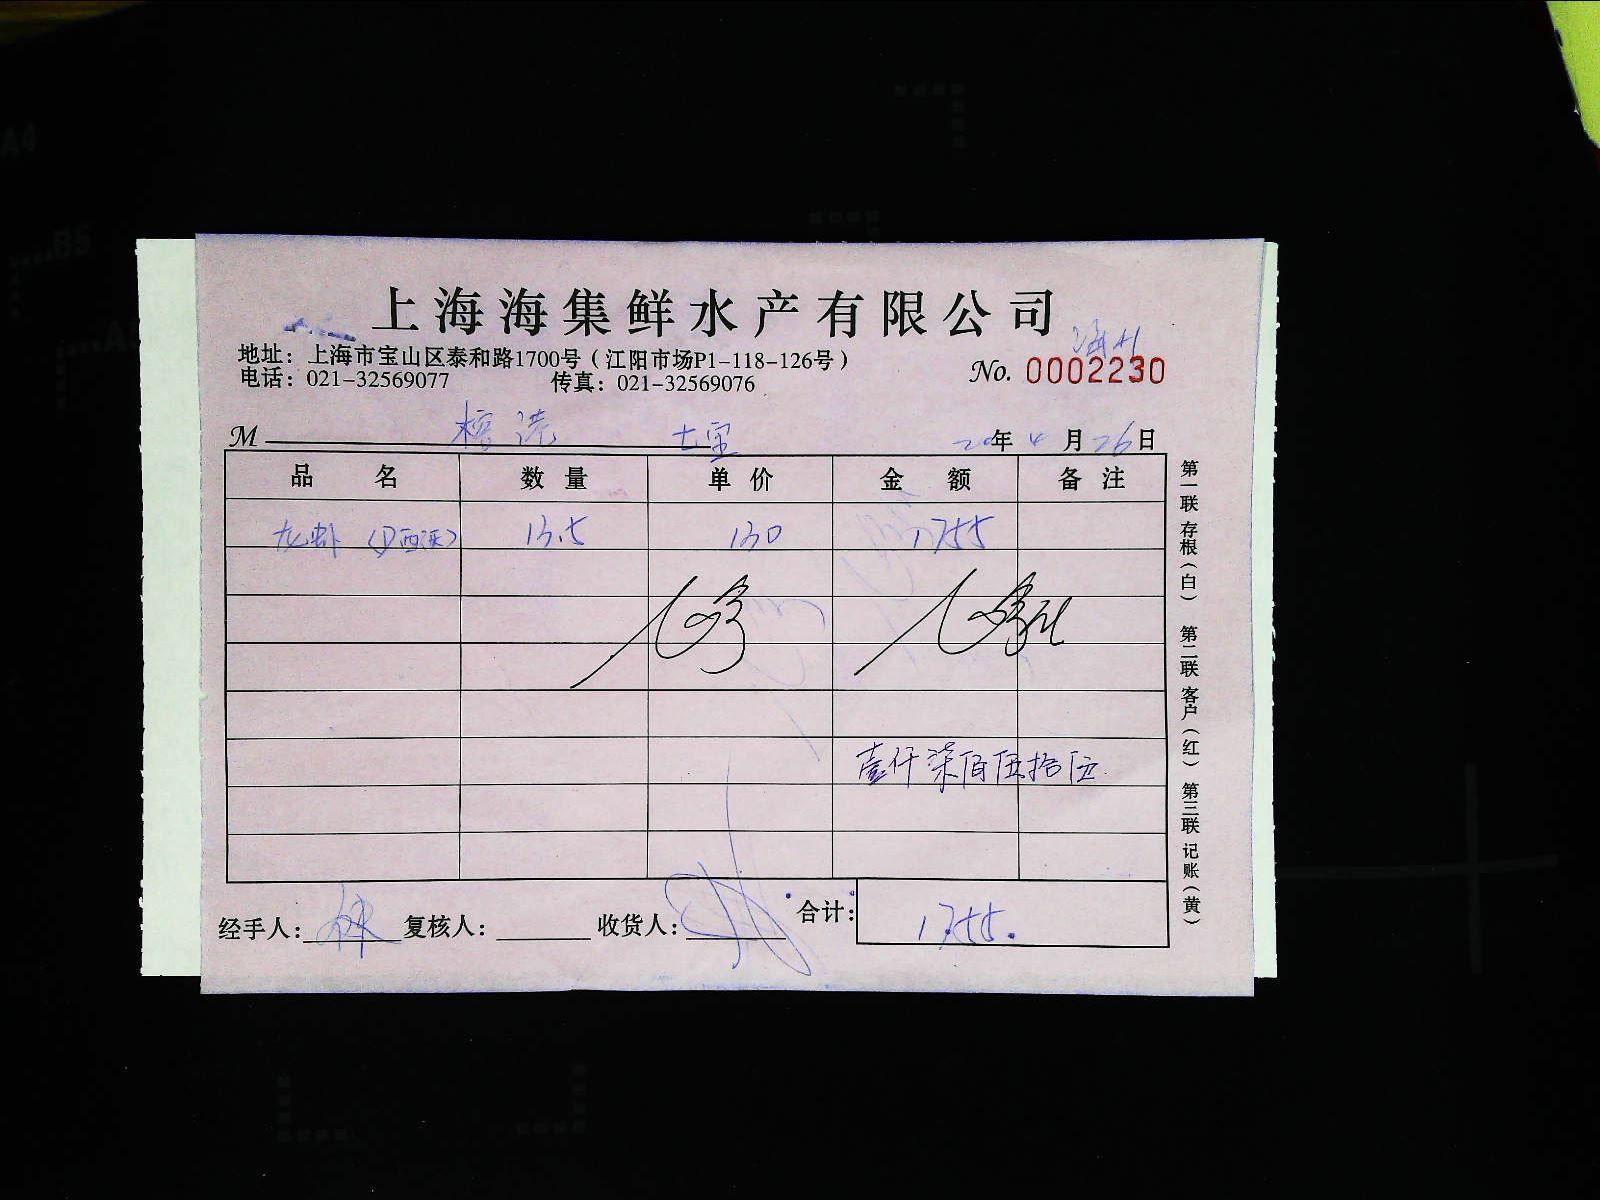 上海海集鲜水产有限公司
地址：上海市宝山区泰和路1700号（江阳市场P1-118-126号）
电话：021-32569077 传真：021-32569076
No. 0002230
M 七宝 20年4月26日
品名 数量 单价 金额 备注
龙虾 13.5 130 1755
壹仟柒佰伍拾伍
经手人：林 复核人： 收货人： 合计：1755.
第一联 存根（白） 第二联 客户（红） 第三联 记账（黄）